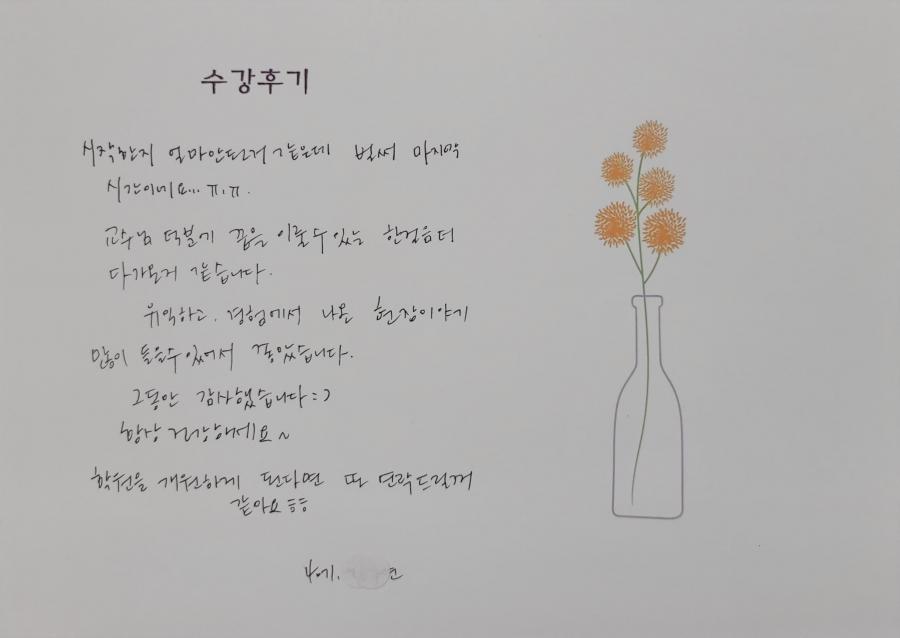 수강후기
시작한지 얼마안된거 같은데 벌써 마지막
시간이네요... ㅠ.ㅠ.
교수님 덕분에 꿈을 이룰수 있는 한걸음 더
다가온거 같습니다.
유익하고, 경험에서 나온 현장이야기
많이 들을수 있어서 좋았습니다.
그동안 감사했습니다 : )
항상 건강하세요 ~
학원을 개원하게 된다면 또 연락드릴게
같아요 ㅎㅎ